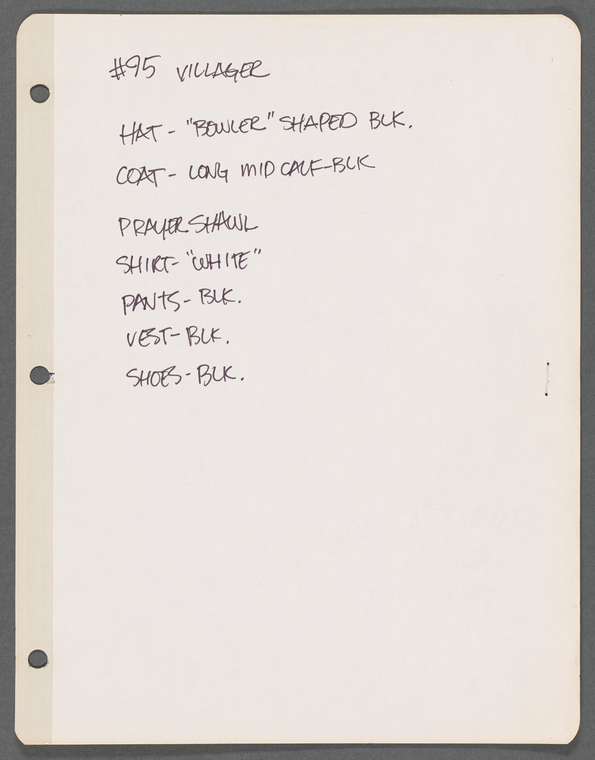 #95 VILLAGER
HAT - "BOWLER" SHAPED BLK.
COAT - LONG MID CALF-BLK
PRAYER SHAWL
SHIRT- "WHITE"
PANTS- BLK.
VEST- BLK.
SHOES- BLK.